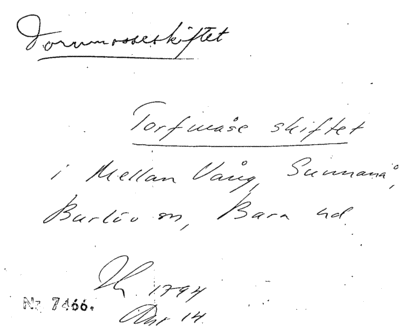 Torvmosseskiftet
Torfmåse skiftet
i Mellan Vång, Sunnanå,
Burlöv sn, Bara hd
1794
Akt 14
Nr 7466.